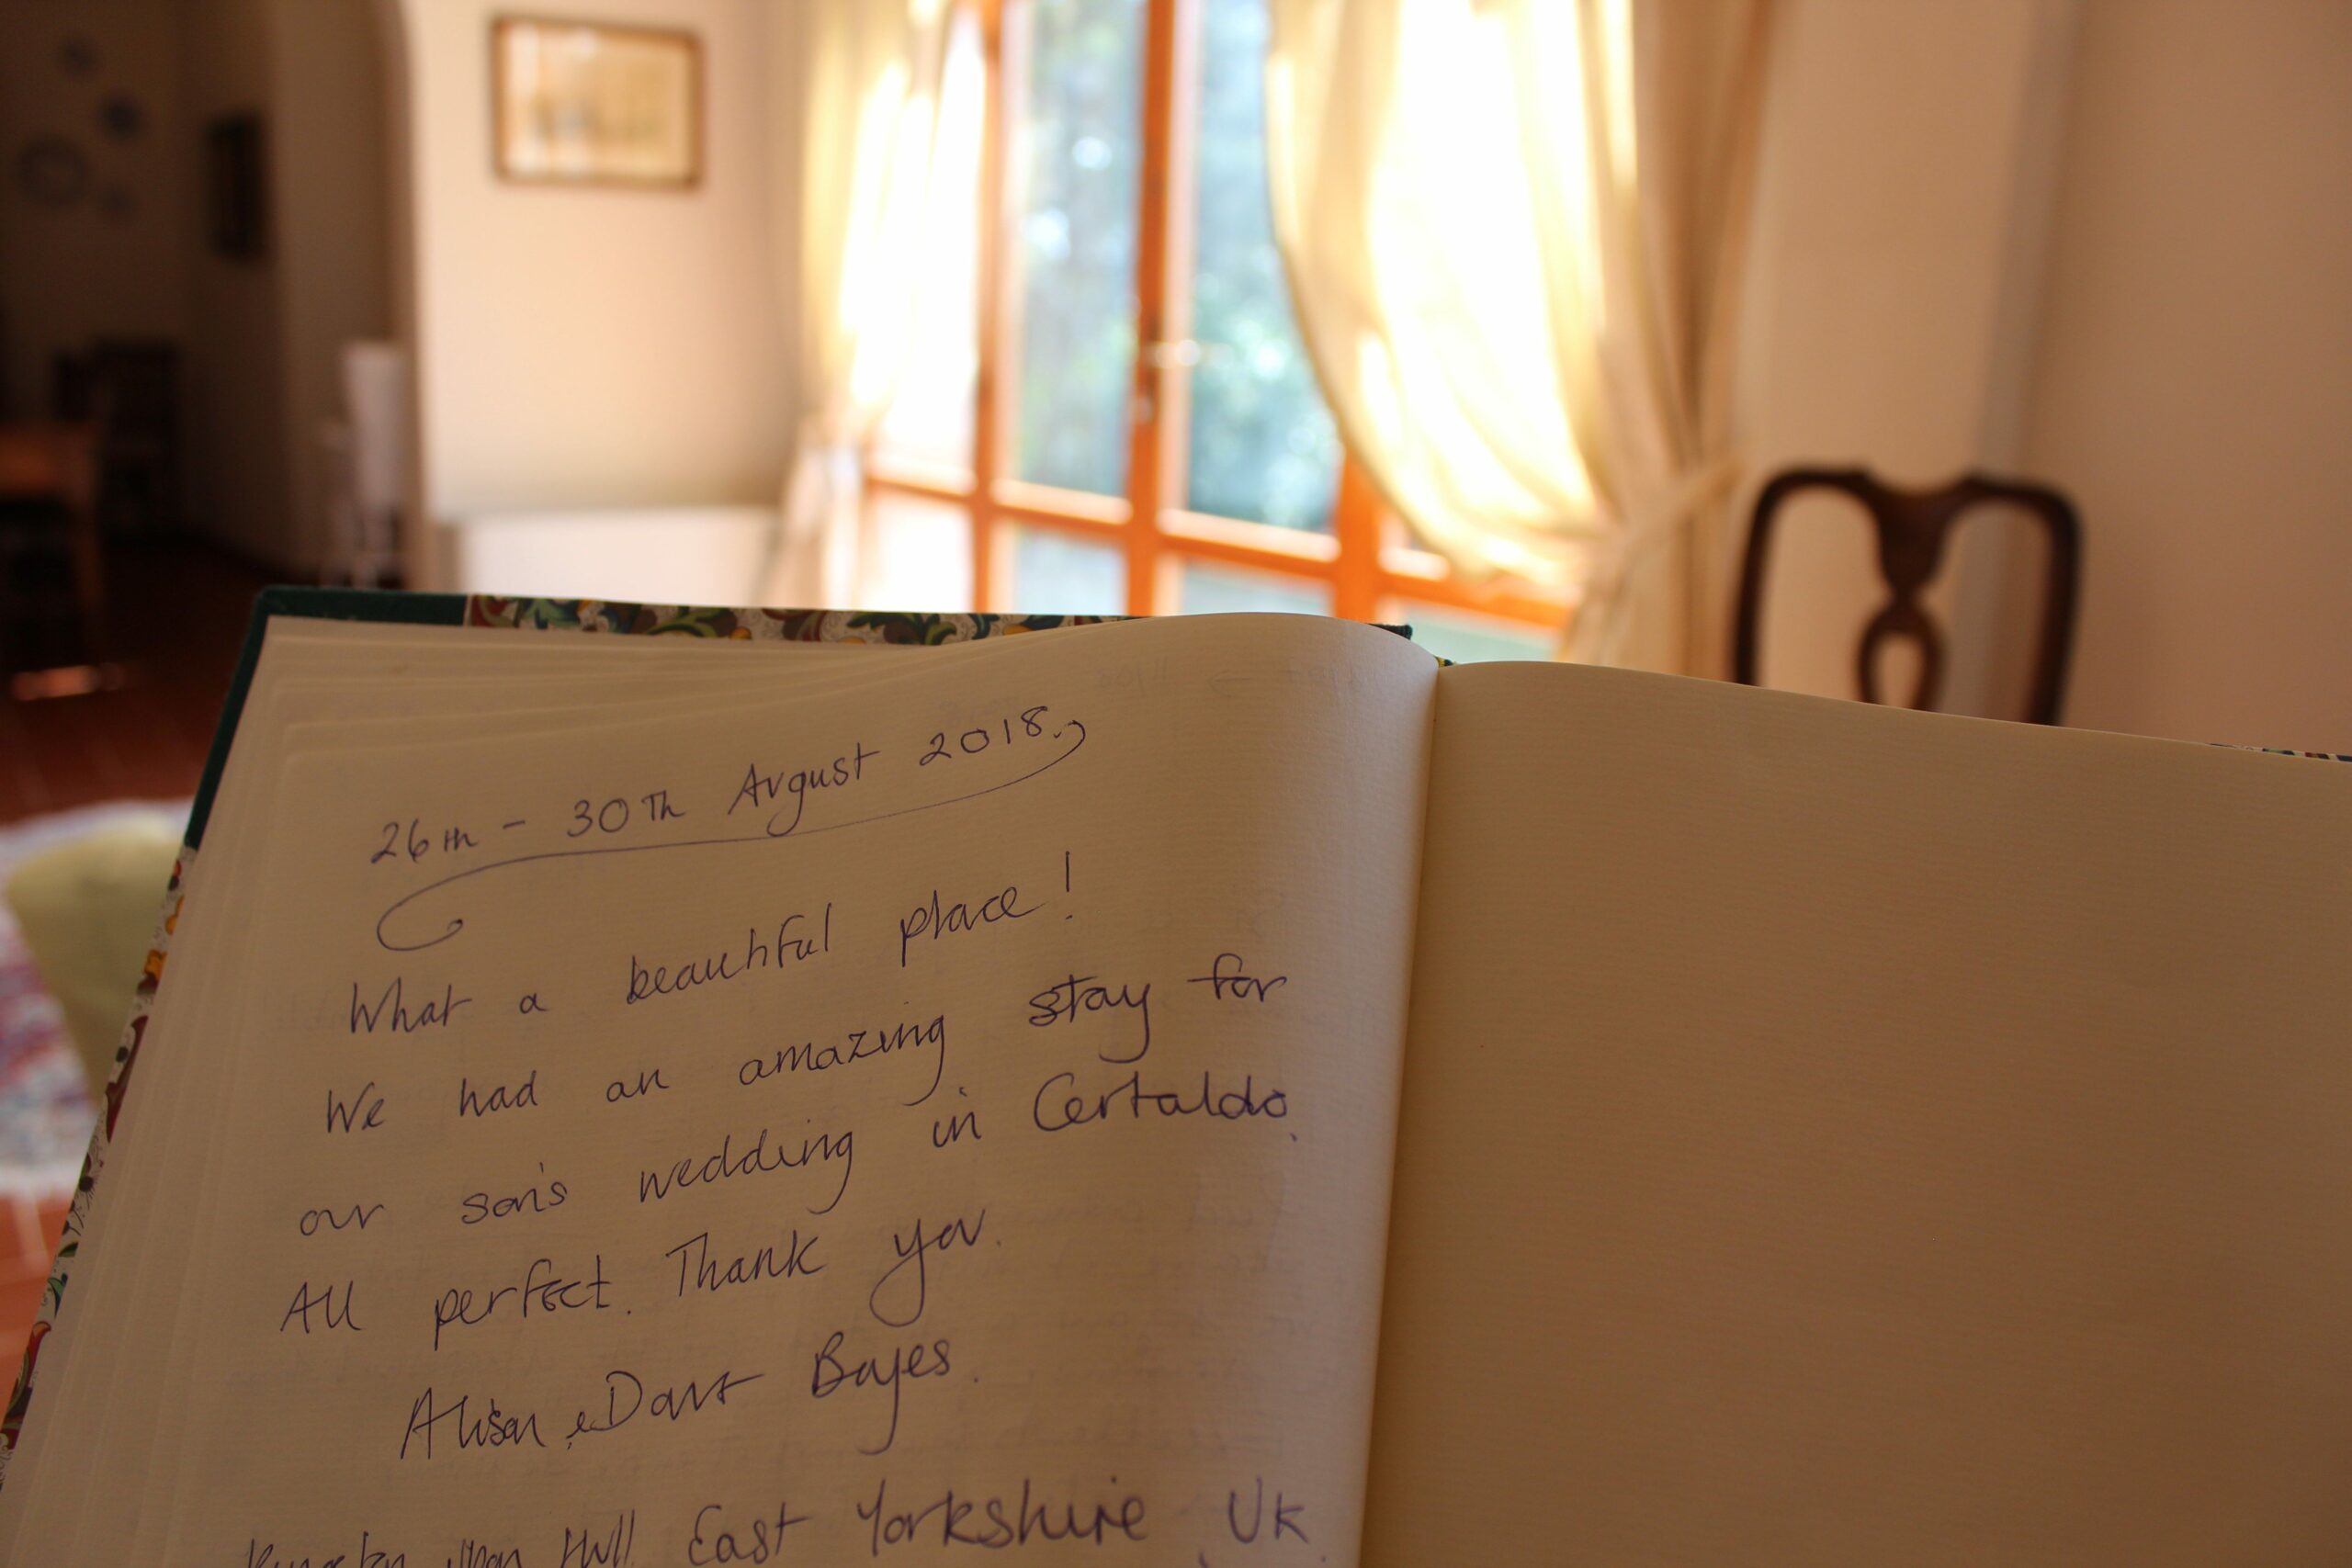 26th - 30Th August 2018.
What a beautiful place!
We had an amazing stay for
our son's wedding in Certaldo.
All perfect. Thank you.
Alison & Dave Bayes.
Kingston upon Hull East Yorkshire, UK.